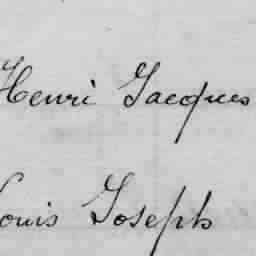 Henri Jacques
Louis Joseph